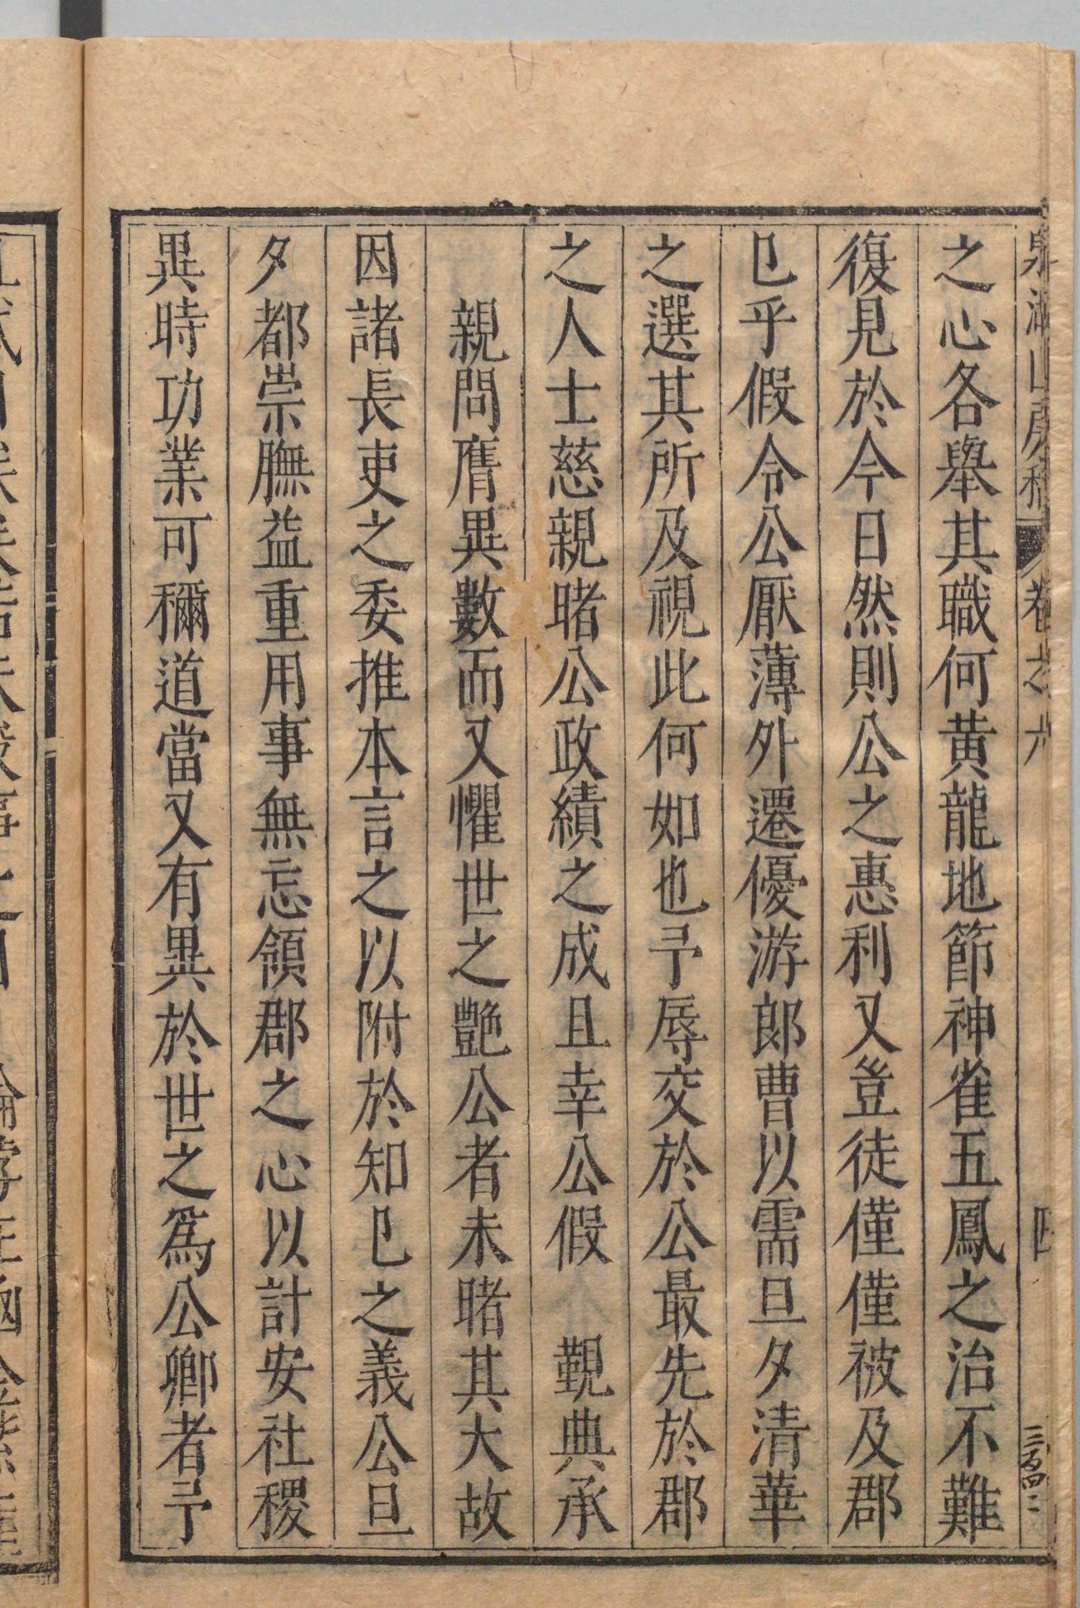 泉湖山房稿 卷之六 四 三百四二
之心各舉其職何黄龍地節神雀五鳳之治不難
復見於今日然則公之惠利又豈徒僅僅被及郡
已乎假令公厭薄外遷優游郎曹以需旦夕清華
之選其所及視此何如也予辱交於公最先於郡
之人士慈親睹公政績之成且幸公假 覲典承
親問膺異數而又懼世之艷公者未睹其大故
因諸長吏之委推本言之以附於知已之義公旦
夕都崇膴益重用事無忘領郡之心以計安社稷
異時功業可稱道當又有異於世之爲公卿者予